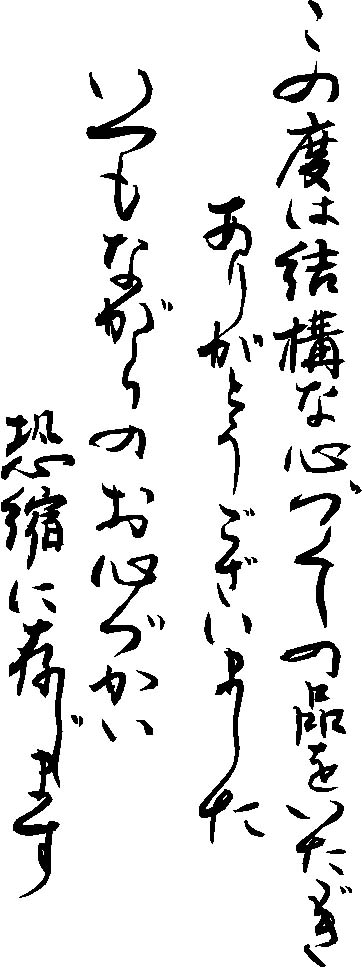 この度は結構な心づくしの品をいただき
ありがとうございました
いつもながらのお心づかい
恐縮に存じます